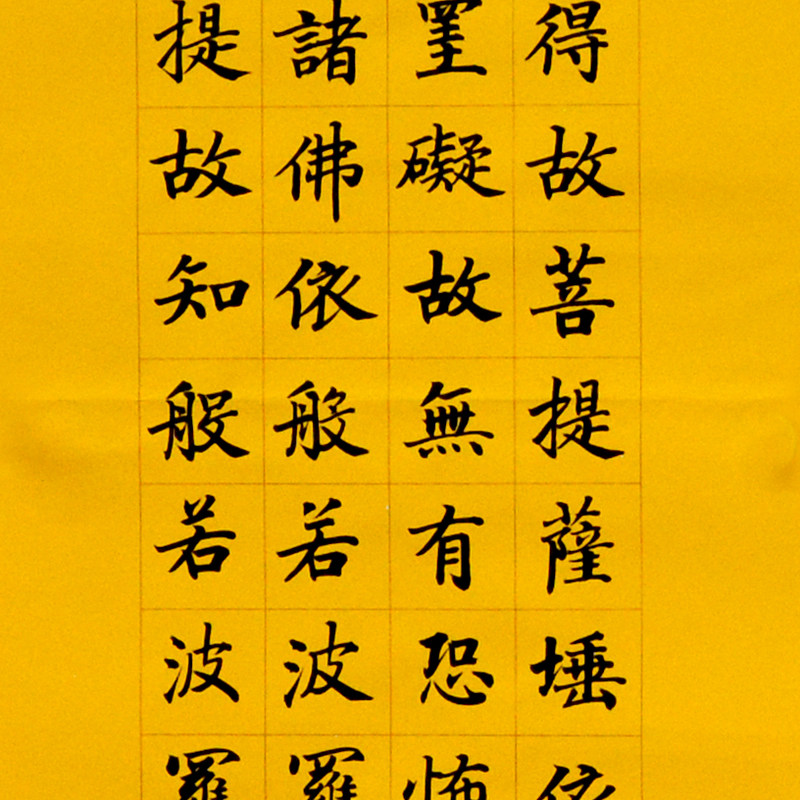 得故菩提薩埵依
罣礙故無有恐怖
諸佛依般若波羅
提故知般若波羅